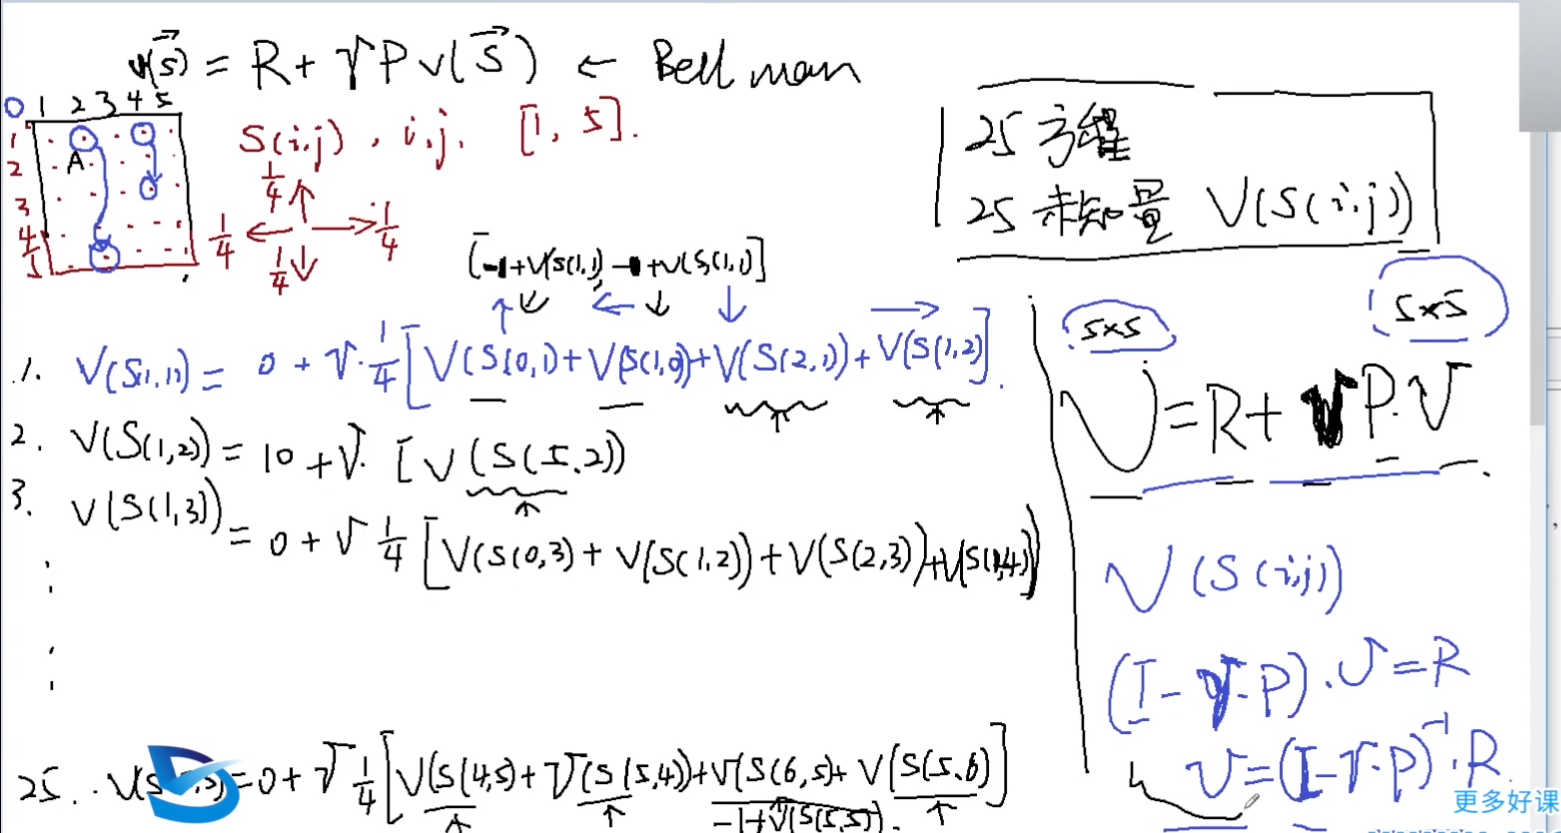 v(s⃗) = R + γ P v(s⃗) ← Bellman
0 1 2 3 4 5
1
2
3
4
5
A
S(i,j), i,j, [1, 5].
1/4
1/4
1/4
1/4
25 方程
25 未知量 V(S(i,j))
[-1+V(S(1,1), -1+V(S(1,1)]
1. V(S(1,1)) = 0 + γ·1/4 [V(S(0,1)+V(S(1,0)+V(S(2,1))+V(S(1,2)].
2. V(S(1,2)) = 10 + γ· [V(S(5,2))
3. V(S(1,3)) = 0 + γ 1/4 [V(S(0,3)+V(S(1,2))+V(S(2,3))+V(S(1,4)]
25. V(S = 0 + γ 1/4 [V(S(4,5)+V(S(5,4))+V(S(6,5)+V(S(5,6)]
-1+V(S(5,5)).
5×5 5×5
V = R + γ P·V.
V(S(i,j))
(I-γ·P)·V = R
V = (I-γ·P)⁻¹·R.
更多好课